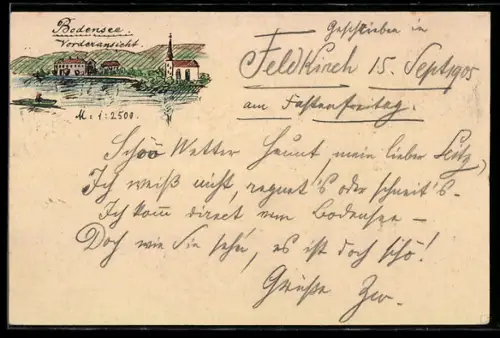 Bodensee.
Vorderansicht
M: 1:2500.
Geschrieben in
Feldkirch 15. Sept 1905
am Fastenfreitag.
Schöö Wetter heunt, mein lieber
Ich weiß nicht, regnet's oder schneit's -
Ich komm direct vom Bodensee -
Doch wie Sie seh'n, es ist doch schö!
Grüße